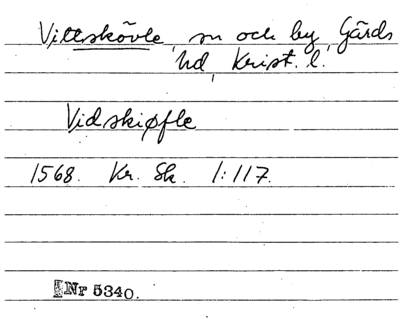 Vittskövle, sn och by, Gärds
hd, Krist. l.
Vidskiøfle
1568. Kr. Sk. 1:117.
Nr 5340.